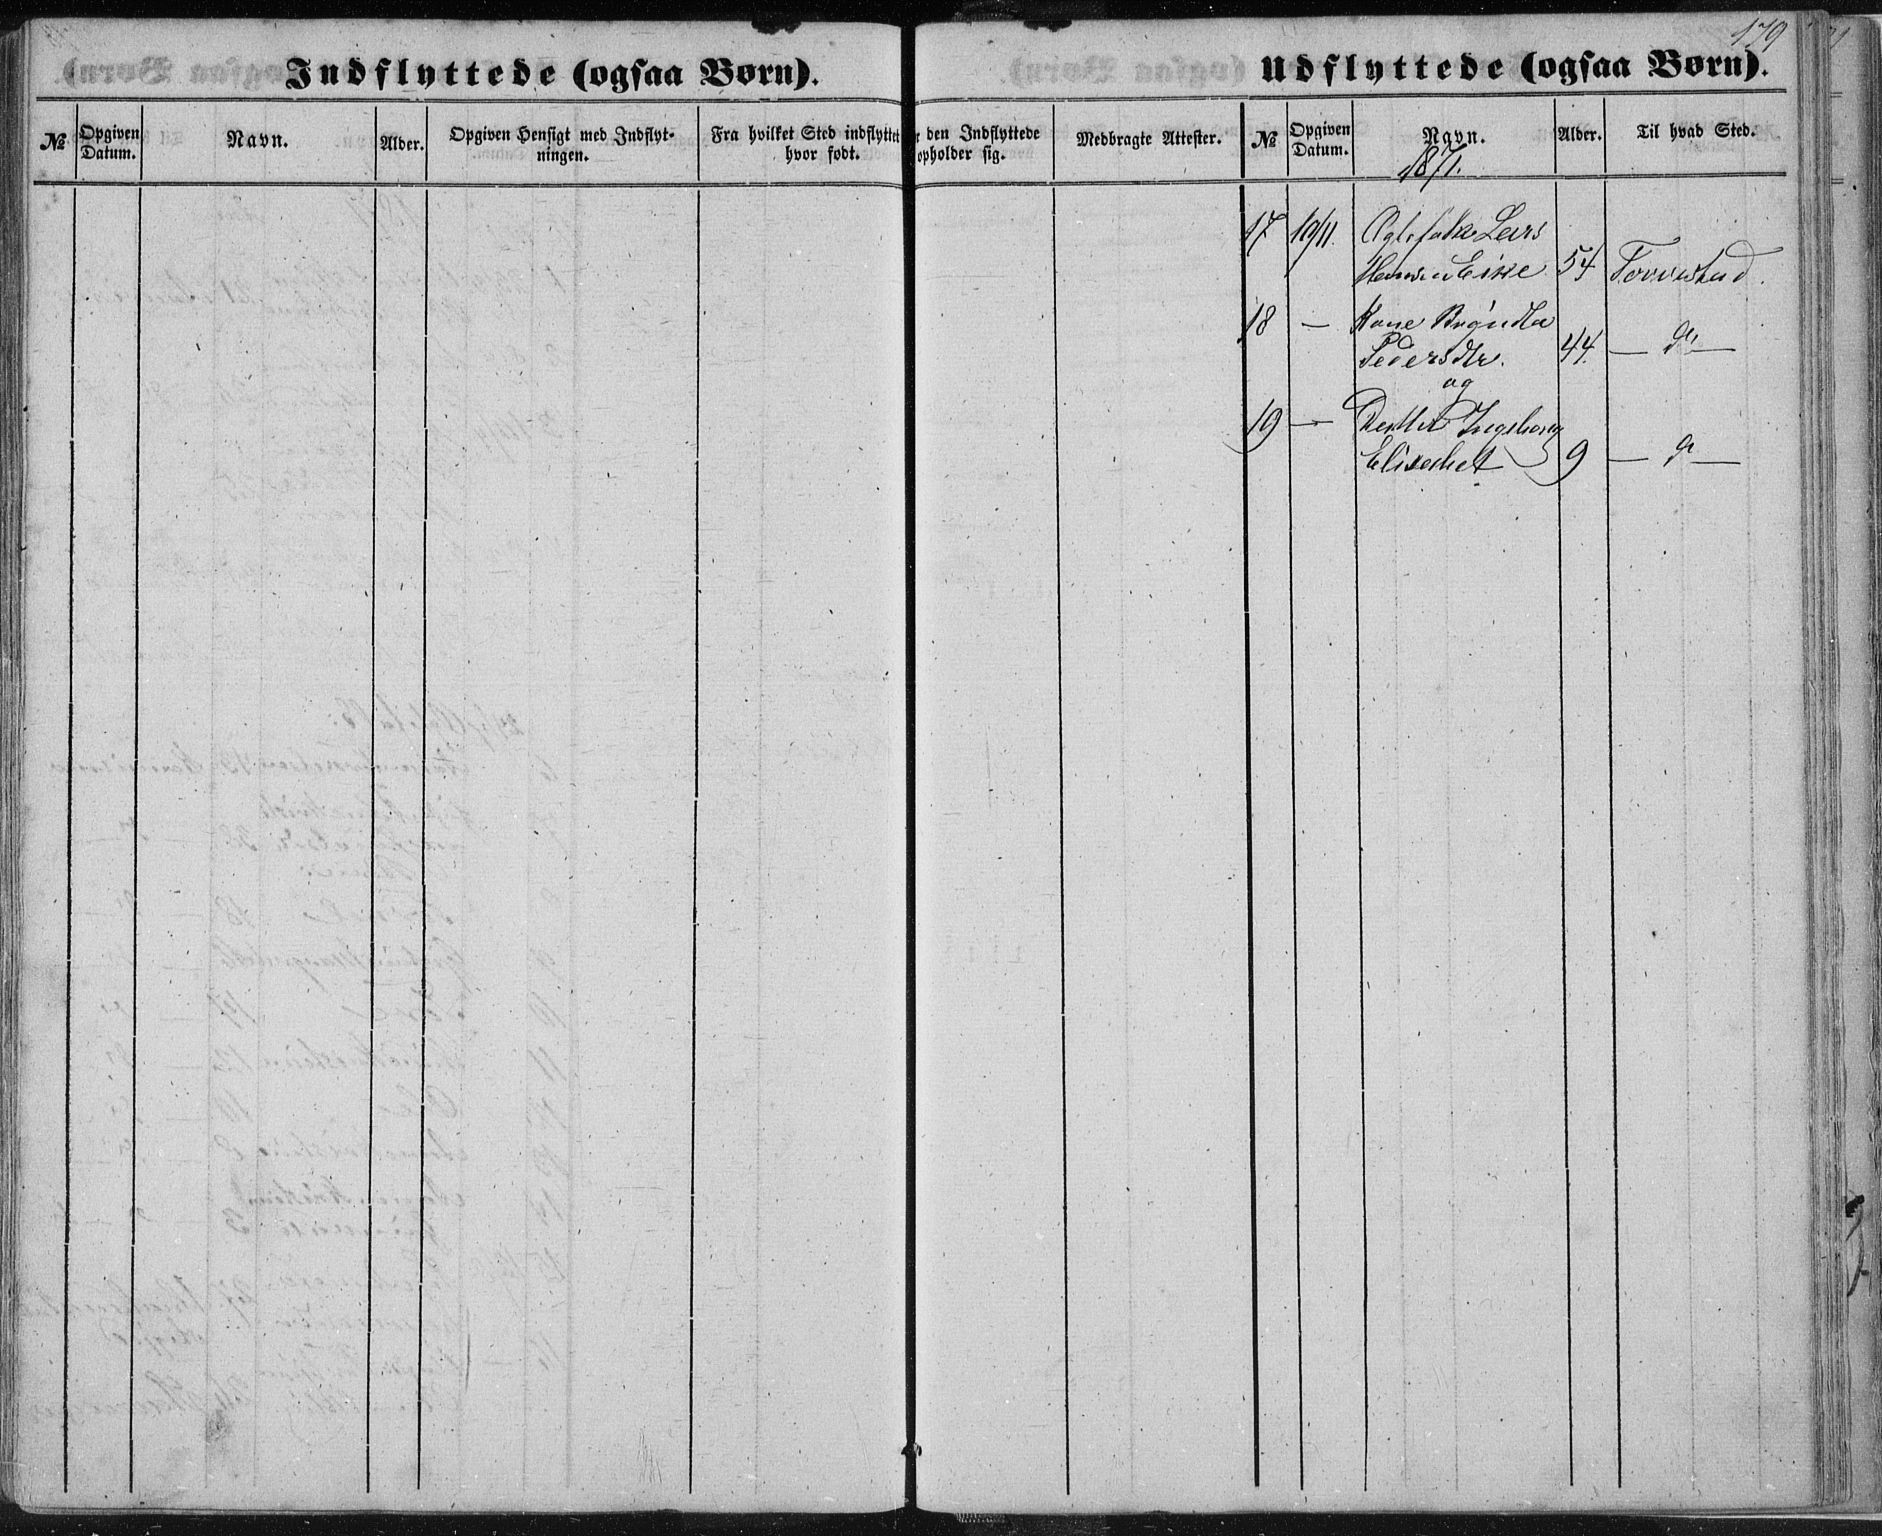 179
Indflyttede (ogsaa Børn).
Udflyttede (ogsaa Børn).
№ Opgiven Datum. Navn. Alder. Opgiven Hensigt med Indflyt-ningen. Fra hvilket Sted indflyttet hvor født. den Indflyttede opholder sig. Medbragte Attester.
№ Opgiven Datum. Navn. Alder. Til hvad Sted.
1871.
17 19/11. Lars
Hansen Eike 54 Torvestad.
18 — Kone
Pedersdtr. 44. — do —
og
19 — Datter Ingeborg
Elisebet 9 — do —